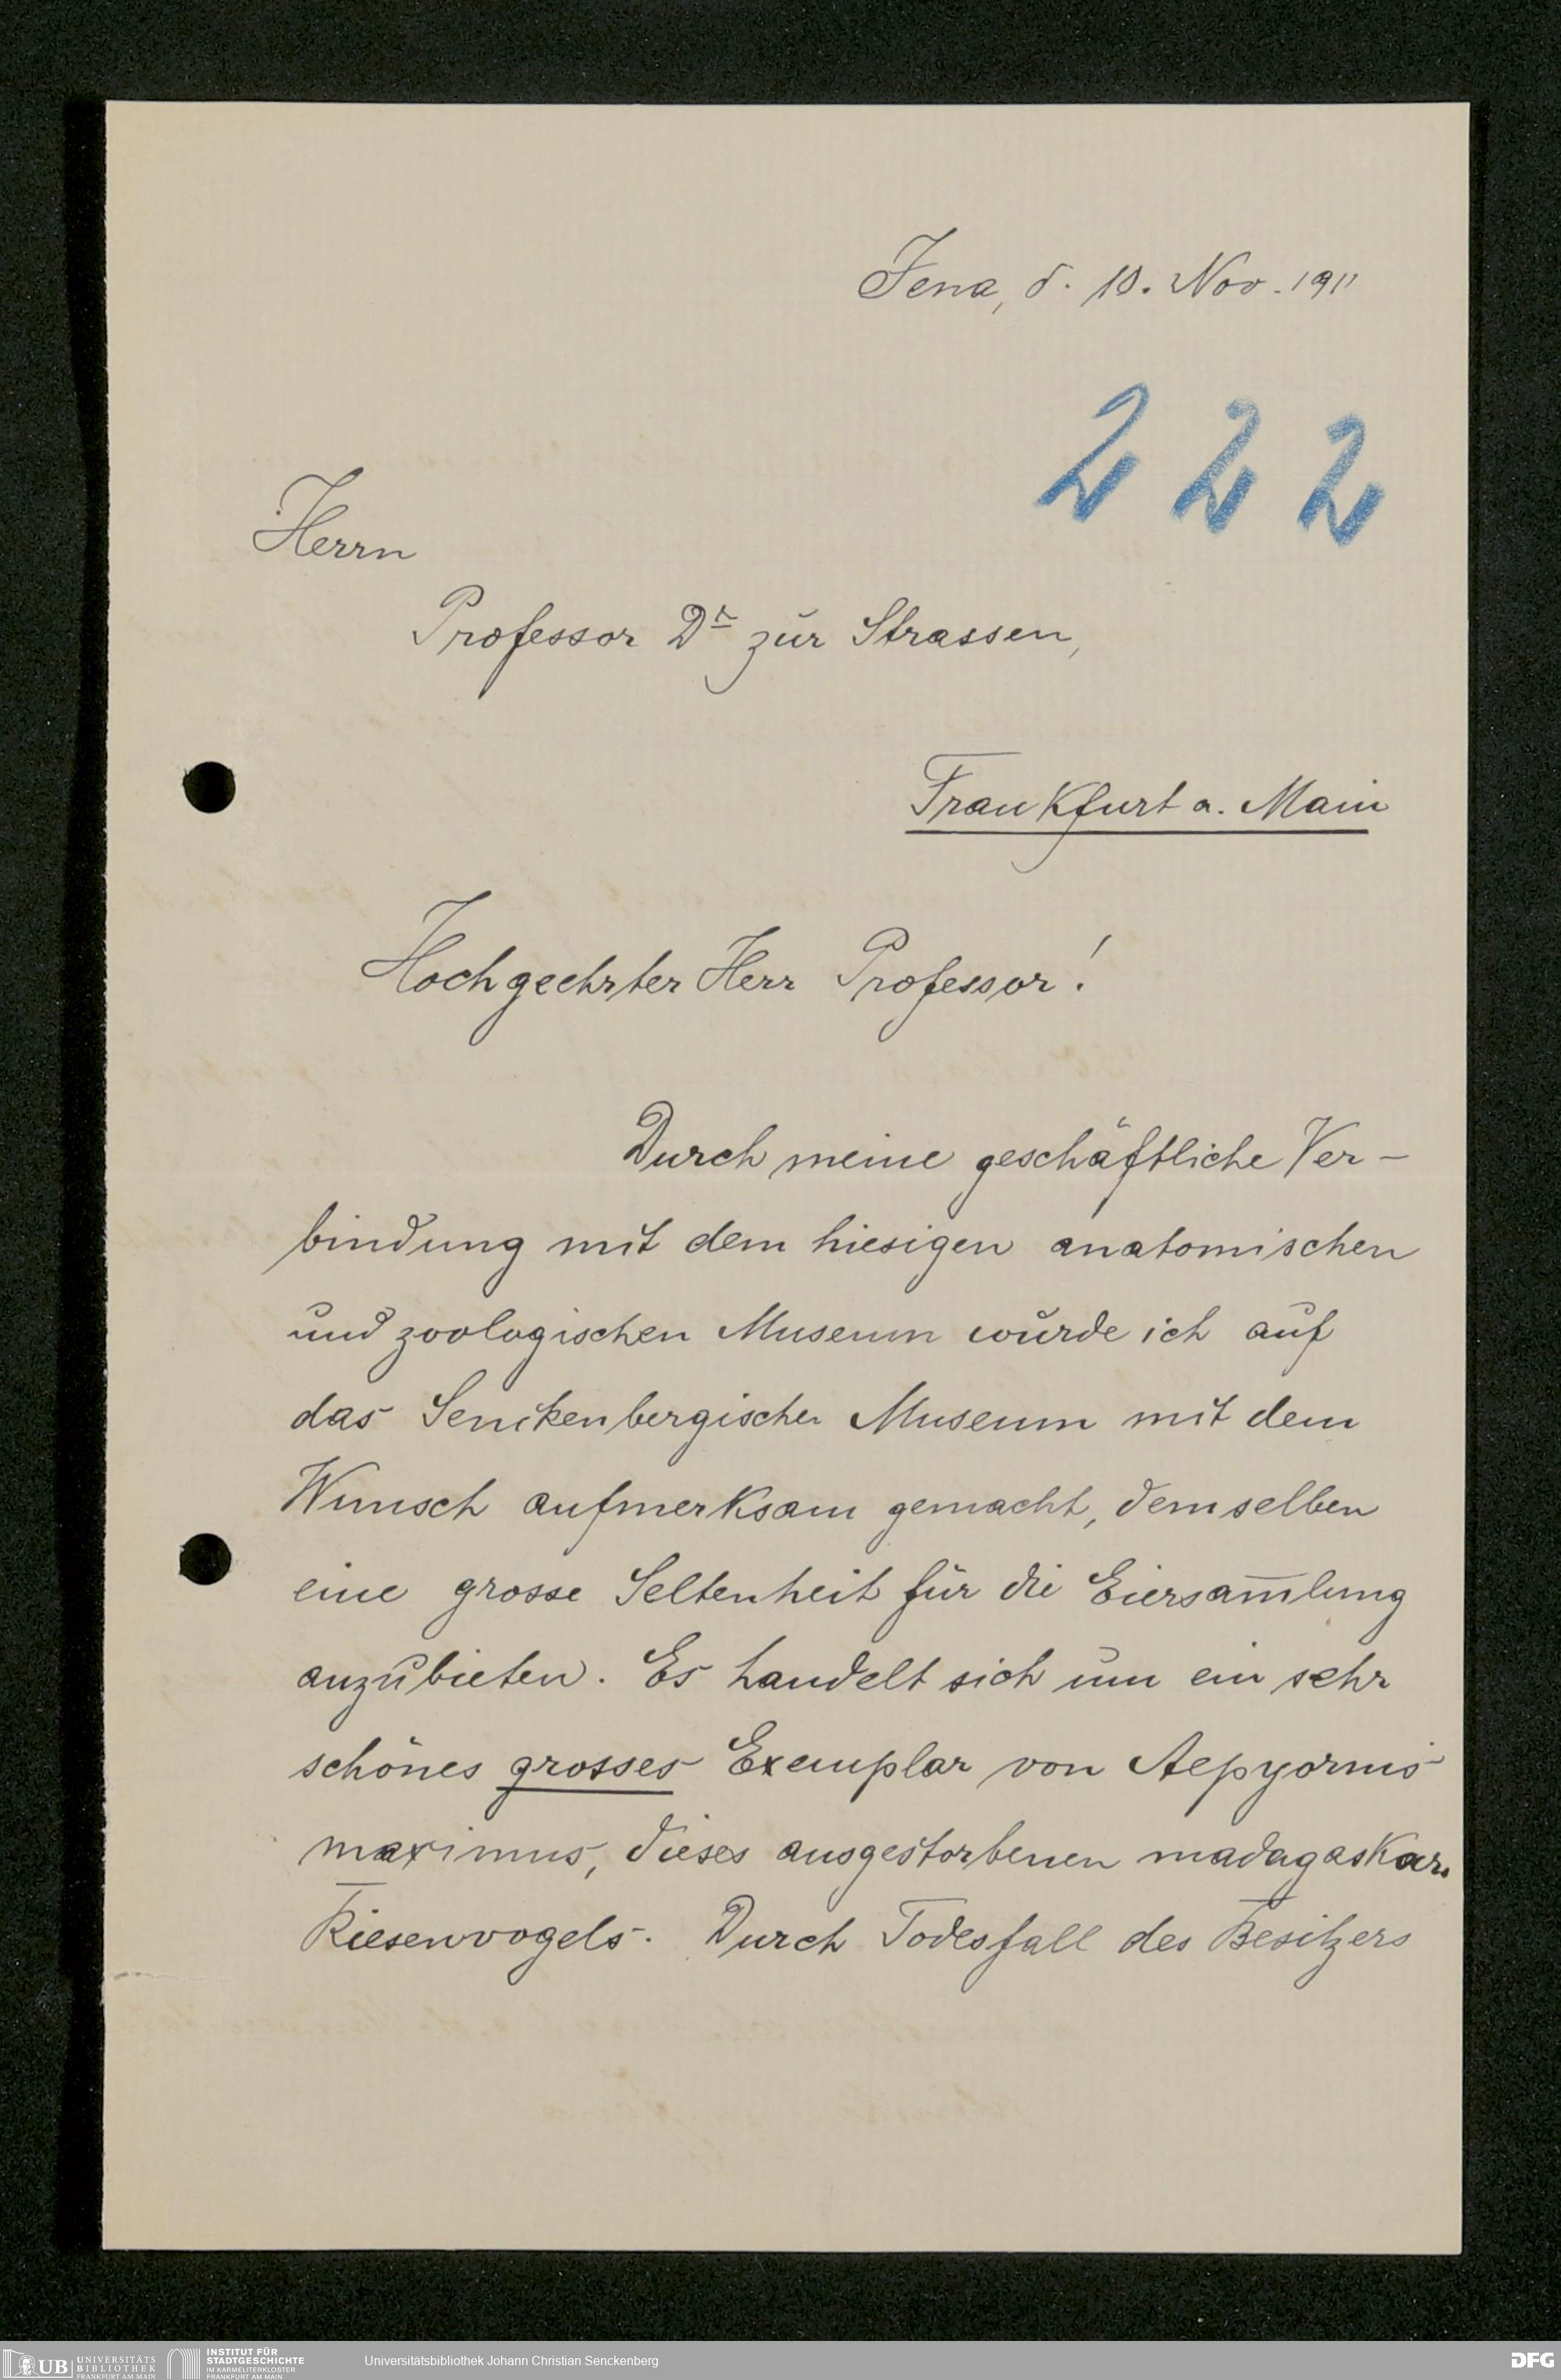 Jena, d. 10. Nov. 1911
222
Herrn
Professor Dr zur Strassen,
Frankfurt a. Main
Hochgeehrter Herr Professor!
Durch meine geschäftliche Ver-
bindung mit dem hiesigen anatomischen
und zoologischen Museum wurde ich auf
das Senckenbergische Museum mit dem
Wunsch aufmerksam gemacht, demselben
eine grosse Seltenheit für die Eiersam̅lung
anzubieten. Es handelt sich um ein sehr
schönes grosses Exemplar von Aepyornis
maximus, dieses ausgestorbenen madagaskar.
Riesenvogels. Durch Todesfall des Besitzers
UB UNIVERSITÄTS
BIBLIOTHEK
FRANKFURT AM MAIN
INSTITUT FÜR
STADTGESCHICHTE
IM KARMELITERKLOSTER
FRANKFURT AM MAIN
Universitätsbibliothek Johann Christian Senckenberg
DFG